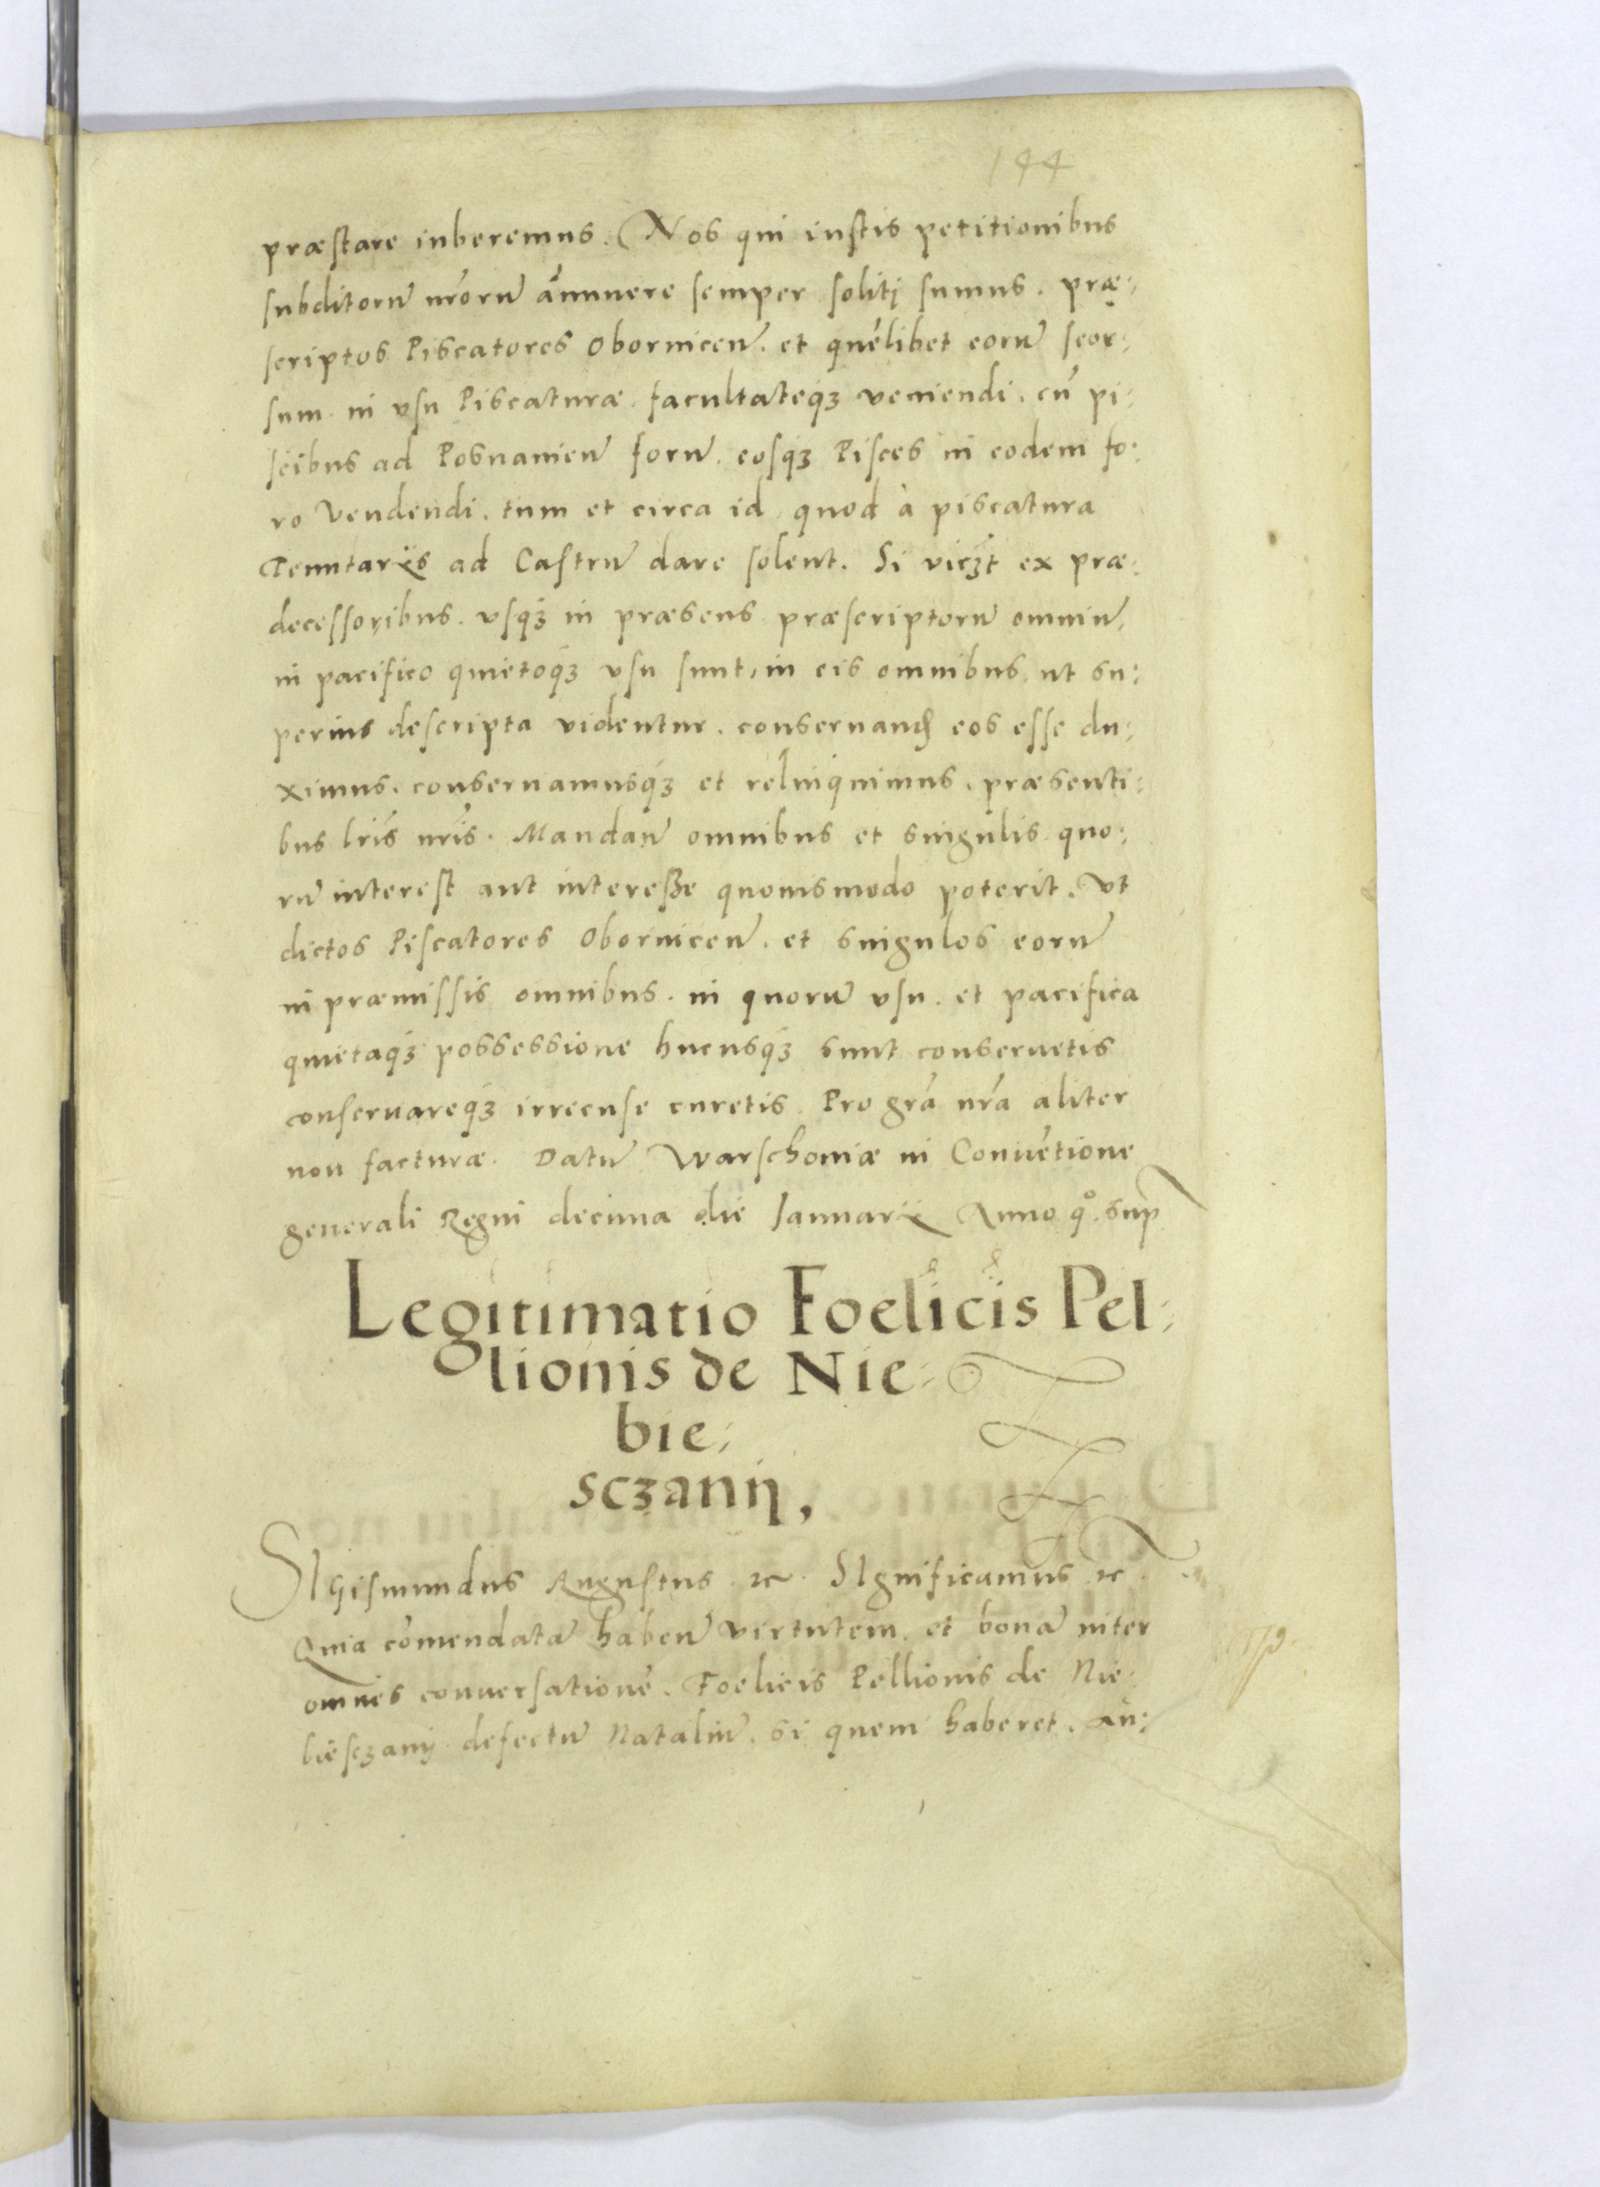 144
præstare iuberemus. Nos qui iustis petitionibus
subditorũ nr̃orũ ãnnuere semper solitj sumus. præ:
scriptos Piscatores Obornicen̄. et quẽlibet eorũ seor:
sum in vsu Piscaturæ facultateqꝫ veniendi. cũ pi:
scibus ad Posnanien̄ forũ. eosqꝫ Pisces in eodem fo:
ro vendendi. tum et circa id quod à piscatura
Tenutarijs ad Castrũ dare solent. Si vicꝫt ex præ:
decessoribus. vsqꝫ in præsens præscriptorũ omniũ,
in pacifico quietoqꝫ vsu sunt, in eis omnibus, ut su:
perius descripta videntur. conseruanḏ eos esse du:
ximus. conseruamusqꝫ et relinquimus. præsenti:
bus lr̃is nr̃is. Mandan̄ omnibus et singulis quo:
rũ interest aut interesse quouismodo poterit. Vt
dictos Piscatores Obornicen̄. et singulos eorũ
in præmissis omnibus. in quorũ vsu. et pacifica
quietaqꝫ possessione hucusqꝫ sunt conseruetis
conseruareqꝫ irrecuse curetis. Pro gr̃a nr̃a aliter
non facturæ. Datũ Warschouiæ in Conuẽtione
generali Regni decima die Ianuarij Anno qͦ. sup
Legitimatio Foelicis Pel:
lionis de Nie:
bie:
sczanij,
SIgismundus Augustus ꝛc. SIgnificamus ꝛc.
Quia cõmendatã haben̄ virtutem. et bonã inter
omnes conuersationẽ. Foelicis Pellionis de Nie:
biesczanij defectũ Nataliũ. si quem haberet. an: